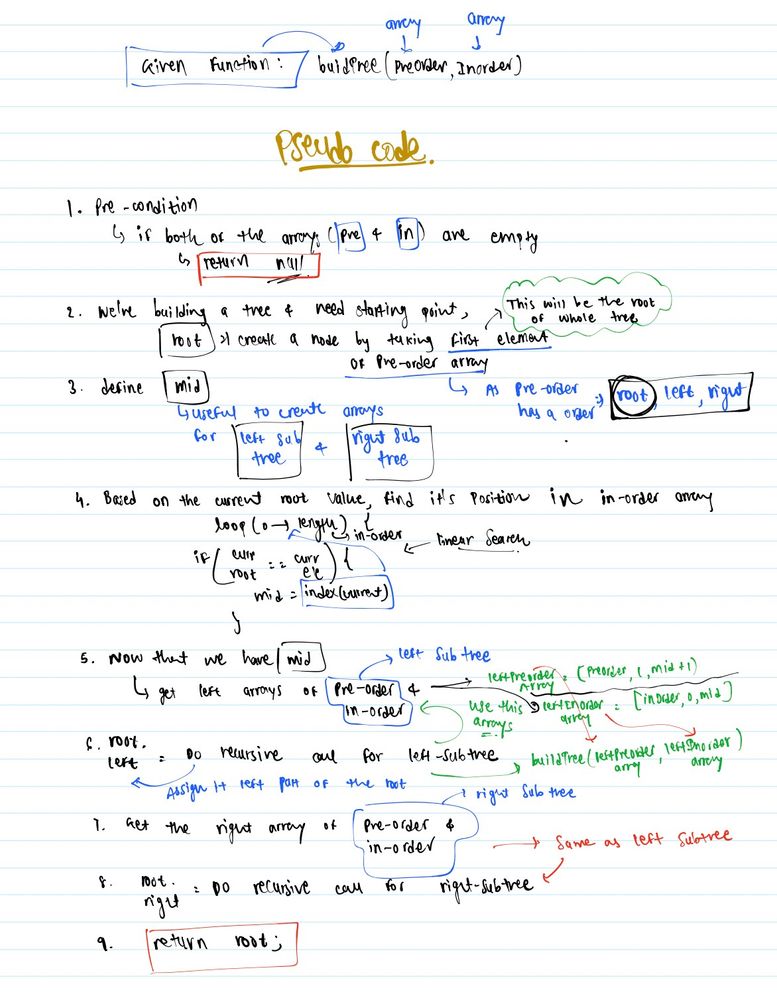 array array
Given Function: buildTree(Preorder, Inorder)
Pseudo code.
1. Pre-condition
↳ if both of the arrays (pre & in) are empty
↳ return null
2. We're building a tree & need starting point,
root → create a node by taking first element
of Pre-order array
This will be the root
of whole tree
↳ As Pre-order
has a order → root, left, right
3. define mid
↳ useful to create arrays
for left sub tree & right sub tree
4. Based on the current root value, find it's position in in-order array
loop (0 → length) {
↳ in-order
← linear search
if (curr root == curr ele) {
mid = index(current)
}
5. Now that we have mid
→ left sub tree
↳ get left arrays of Pre-order &
in-order
leftPreorder Array = [Preorder, 1, mid+1)
leftInorder array = [inorder, 0, mid]
use this
arrays
6. root.
left = Do recursive call for left-subtree
→ buildTree(leftPreorder array, leftInorder array)
Assign it left part of the root
→ right sub tree
7. Get the right array of Pre-order &
in-order
→ Same as left subtree
8. root.
right = Do recursive call for right-subtree
9. return root;